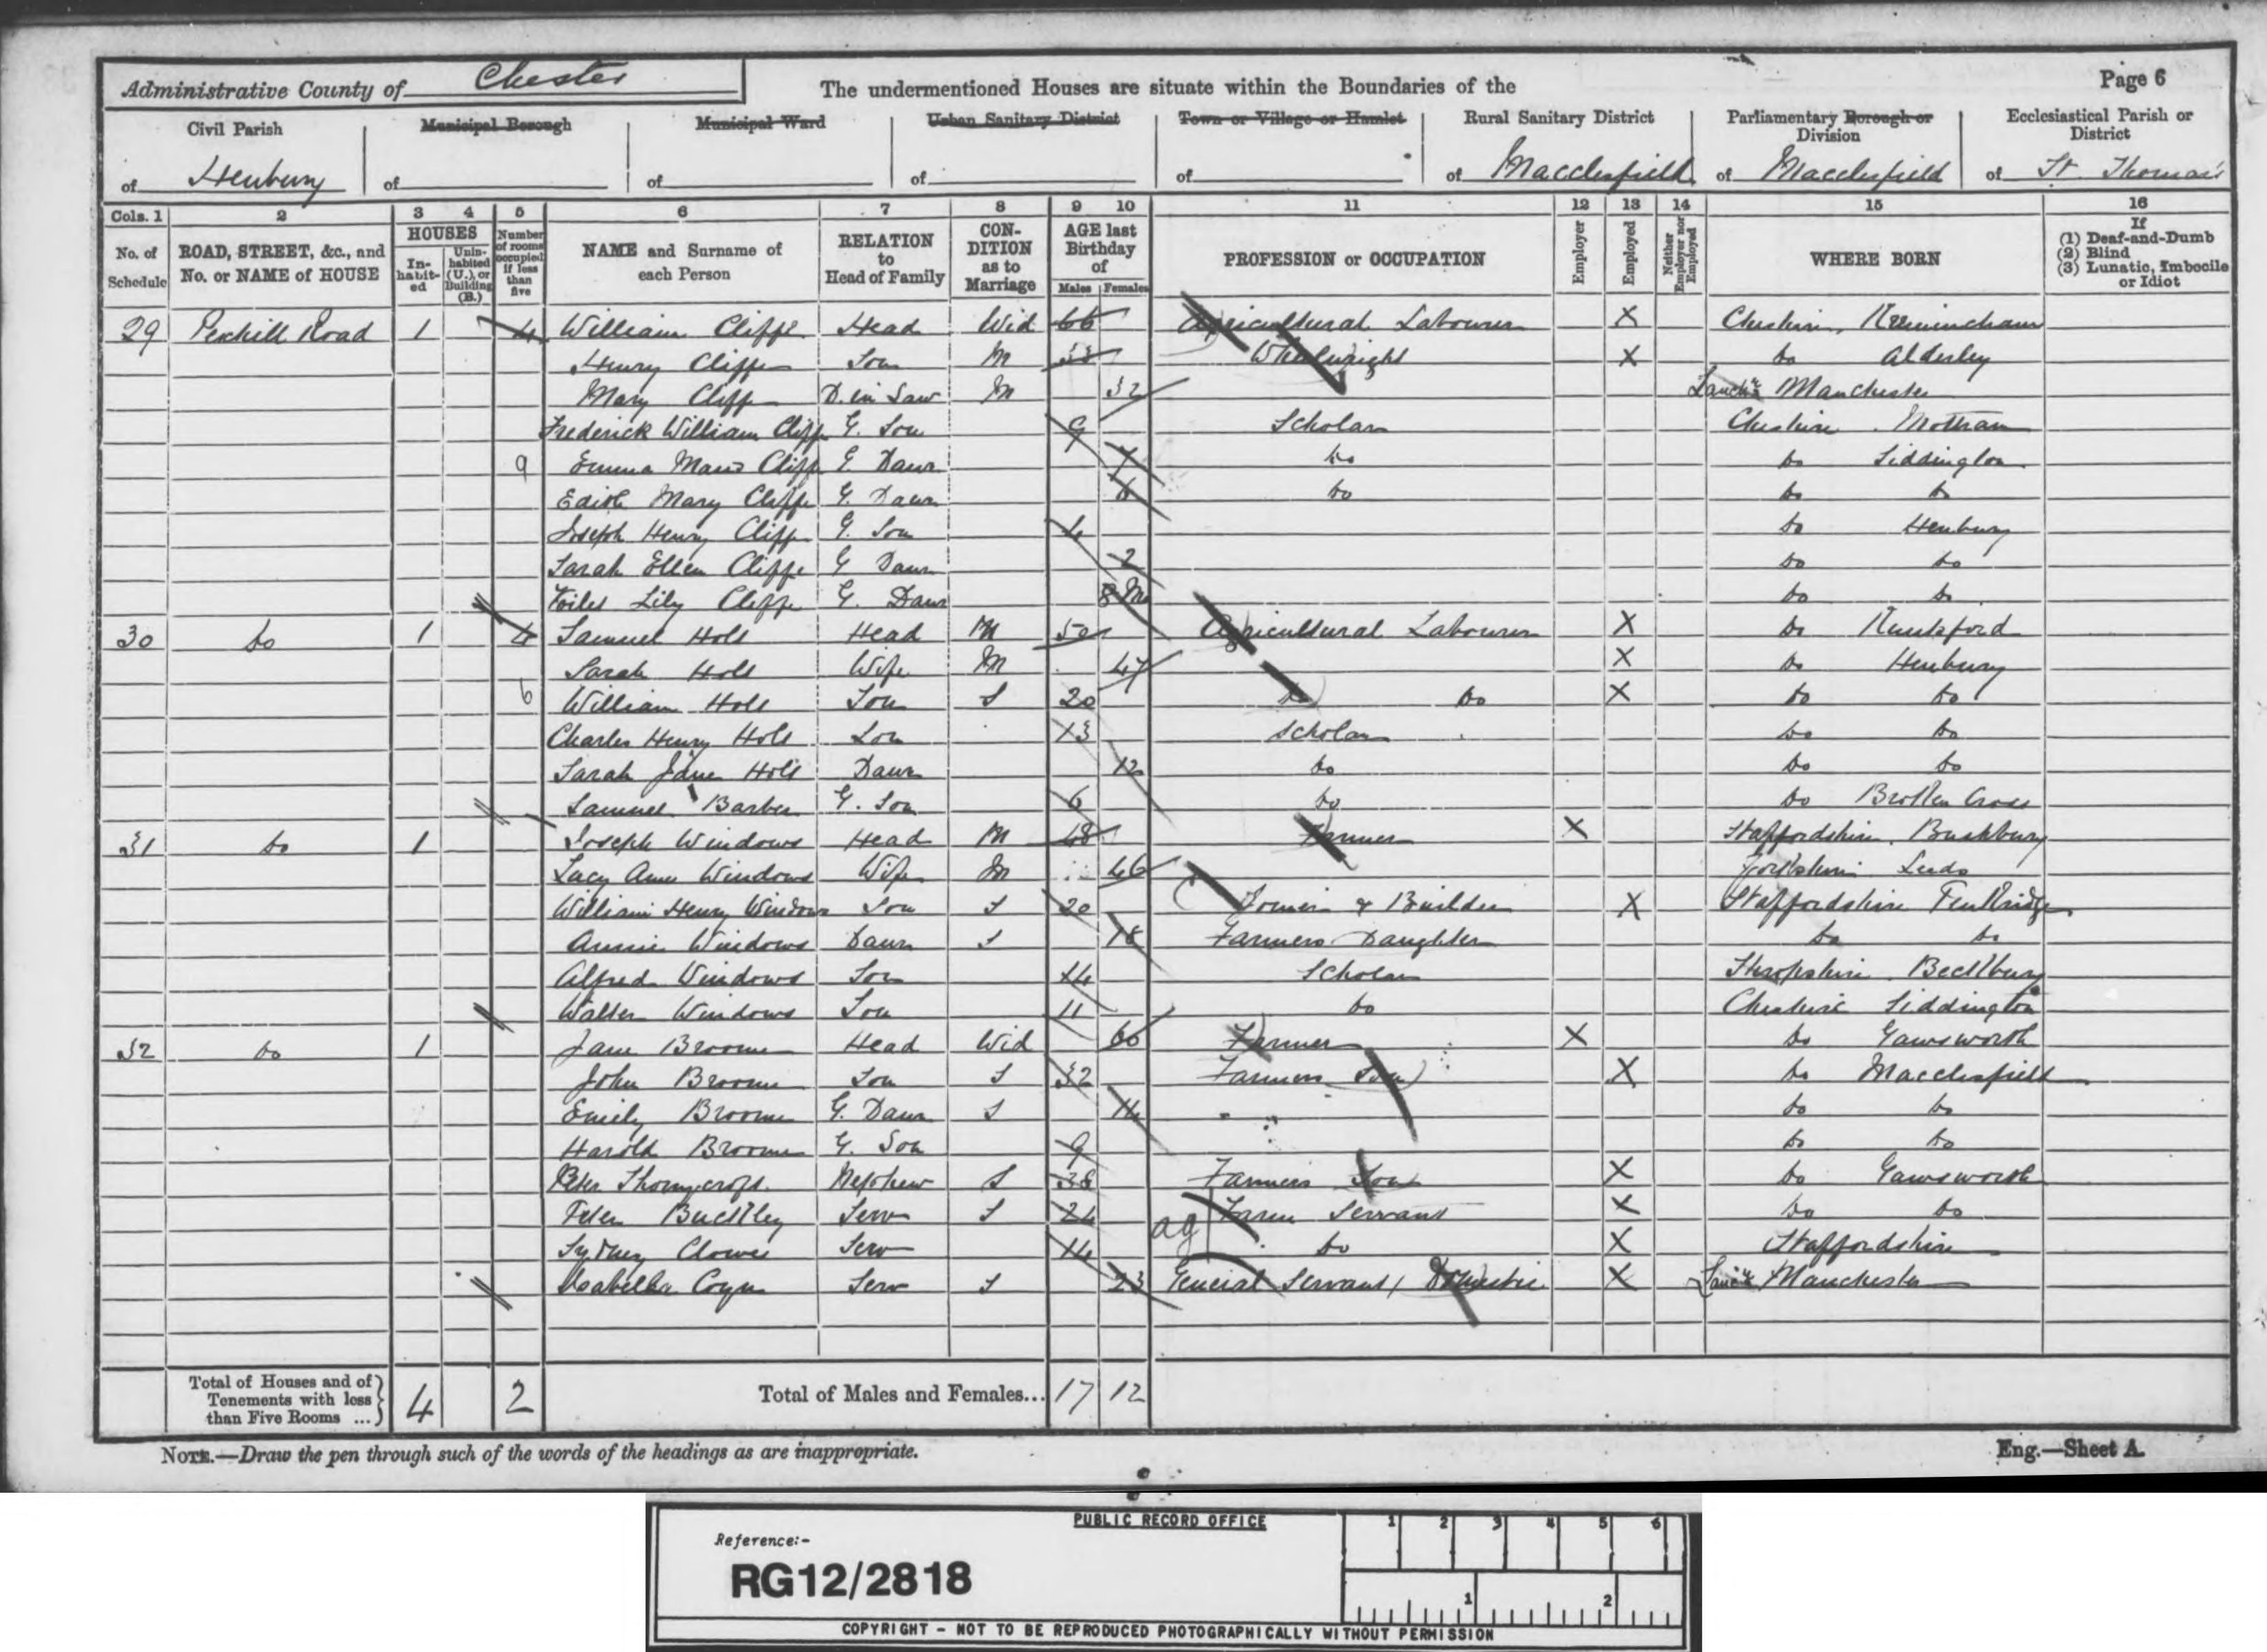 Administrative County of Chester
The undermentioned Houses are situate within the Boundaries of the
Page 6
Civil Parish of Henbury
Municipal Borough of
Municipal Ward of
Urban Sanitary District of
Town or Village or Hamlet of
Rural Sanitary District of Macclesfield
Parliamentary Borough or Division of Macclesfield
Ecclesiastical Parish or District of St. Thomas'
Cols. 1 2 3 4 5 6 7 8 9 10 11 12 13 14 15 16
No. of Schedule
ROAD, STREET, &c., and No. or NAME of HOUSE
HOUSES
In-habit-ed
Unin-habited (U.), or Building (B.)
Number of rooms occupied if less than five
NAME and Surname of each Person
RELATION to Head of Family
CON-DITION as to Marriage
AGE last Birthday of
Males Females
PROFESSION or OCCUPATION
Employer
Employed
Neither Employer nor Employed
WHERE BORN
If
(1) Deaf-and-Dumb
(2) Blind
(3) Lunatic, Imbecile or Idiot
29 Pexhill Road 1 4 William Cliffe Head Wid 66 Agricultural Labourer X Cheshire,
Henry Cliffe Son M Wheelwright X Do Alderley
Mary Cliffe D. in Law M 32 Manchester
Frederick William Cliffe G. Son 9 Scholar Cheshire Mottram
9 Emma Cliffe G. Daur 7 Do Do Siddington
Edith Mary Cliffe G. Daur 6 Do Do Do
Joseph Henry Cliffe G. Son 4 Do Henbury
Sarah Ellen Cliffe G Daur 2 Do Do
Lily Cliffe G. Daur 8 M Do Do
30 Do 1 4 Samuel Holt Head M 50 Agricultural Labourer X Do Knutsford
Sarah Holt Wife M 47 X Do Henbury
6 William Holt Son S 20 Do Do X Do Do
Charles Henry Holt Son 13 Scholar Do Do
Sarah Jane Holt Daur 12 Do Do Do
Samuel Barber G. Son 6 Do Do Broken Cross
31 Do 1 Joseph Windows Head M 48 Farmer X Staffordshire Bushbury
Lucy Ann Windows Wife M 46 Yorkshire Leeds
William Henry Windows Son S 20 Joiner & Builder X Staffordshire Penkridge
Annie Windows Daur S 18 Farmers Daughter Do Do
Alfred Windows Son 14 Scholar Shropshire Beckbury
Walter Windows Son 11 Do Cheshire Siddington
32 Do 1 Jane Broome Head Wid 60 Farmer X Do Gawsworth
John Broome Son S 32 Farmers Son X Do Macclesfield
Emily Broome G. Daur S 14 Do Do
Harold Broome G. Son 9 Do Do
Peter Thornycroft Nephew S 38 Farmers Son X Do Gawsworth
Peter Buckley Serv S 24 ag Farm Servant X Do Do
Sydney Clowes Serv 14 Do X Staffordshire
Isabella Serv S 23 General Servant, Domestic X Manchester
Total of Houses and of Tenements with less than Five Rooms ... 4 2
Total of Males and Females... 17 12
NOTE.—Draw the pen through such of the words of the headings as are inappropriate.
Eng.—Sheet A.
PUBLIC RECORD OFFICE
1 2 3 4 5 6
Reference:-
RG12/2818
1 2
COPYRIGHT - NOT TO BE REPRODUCED PHOTOGRAPHICALLY WITHOUT PERMISSION